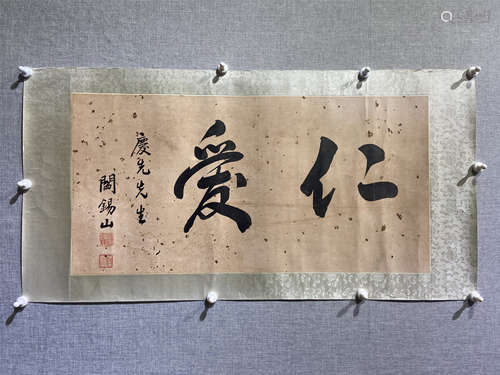 仁愛
慶先先生
閻錫山